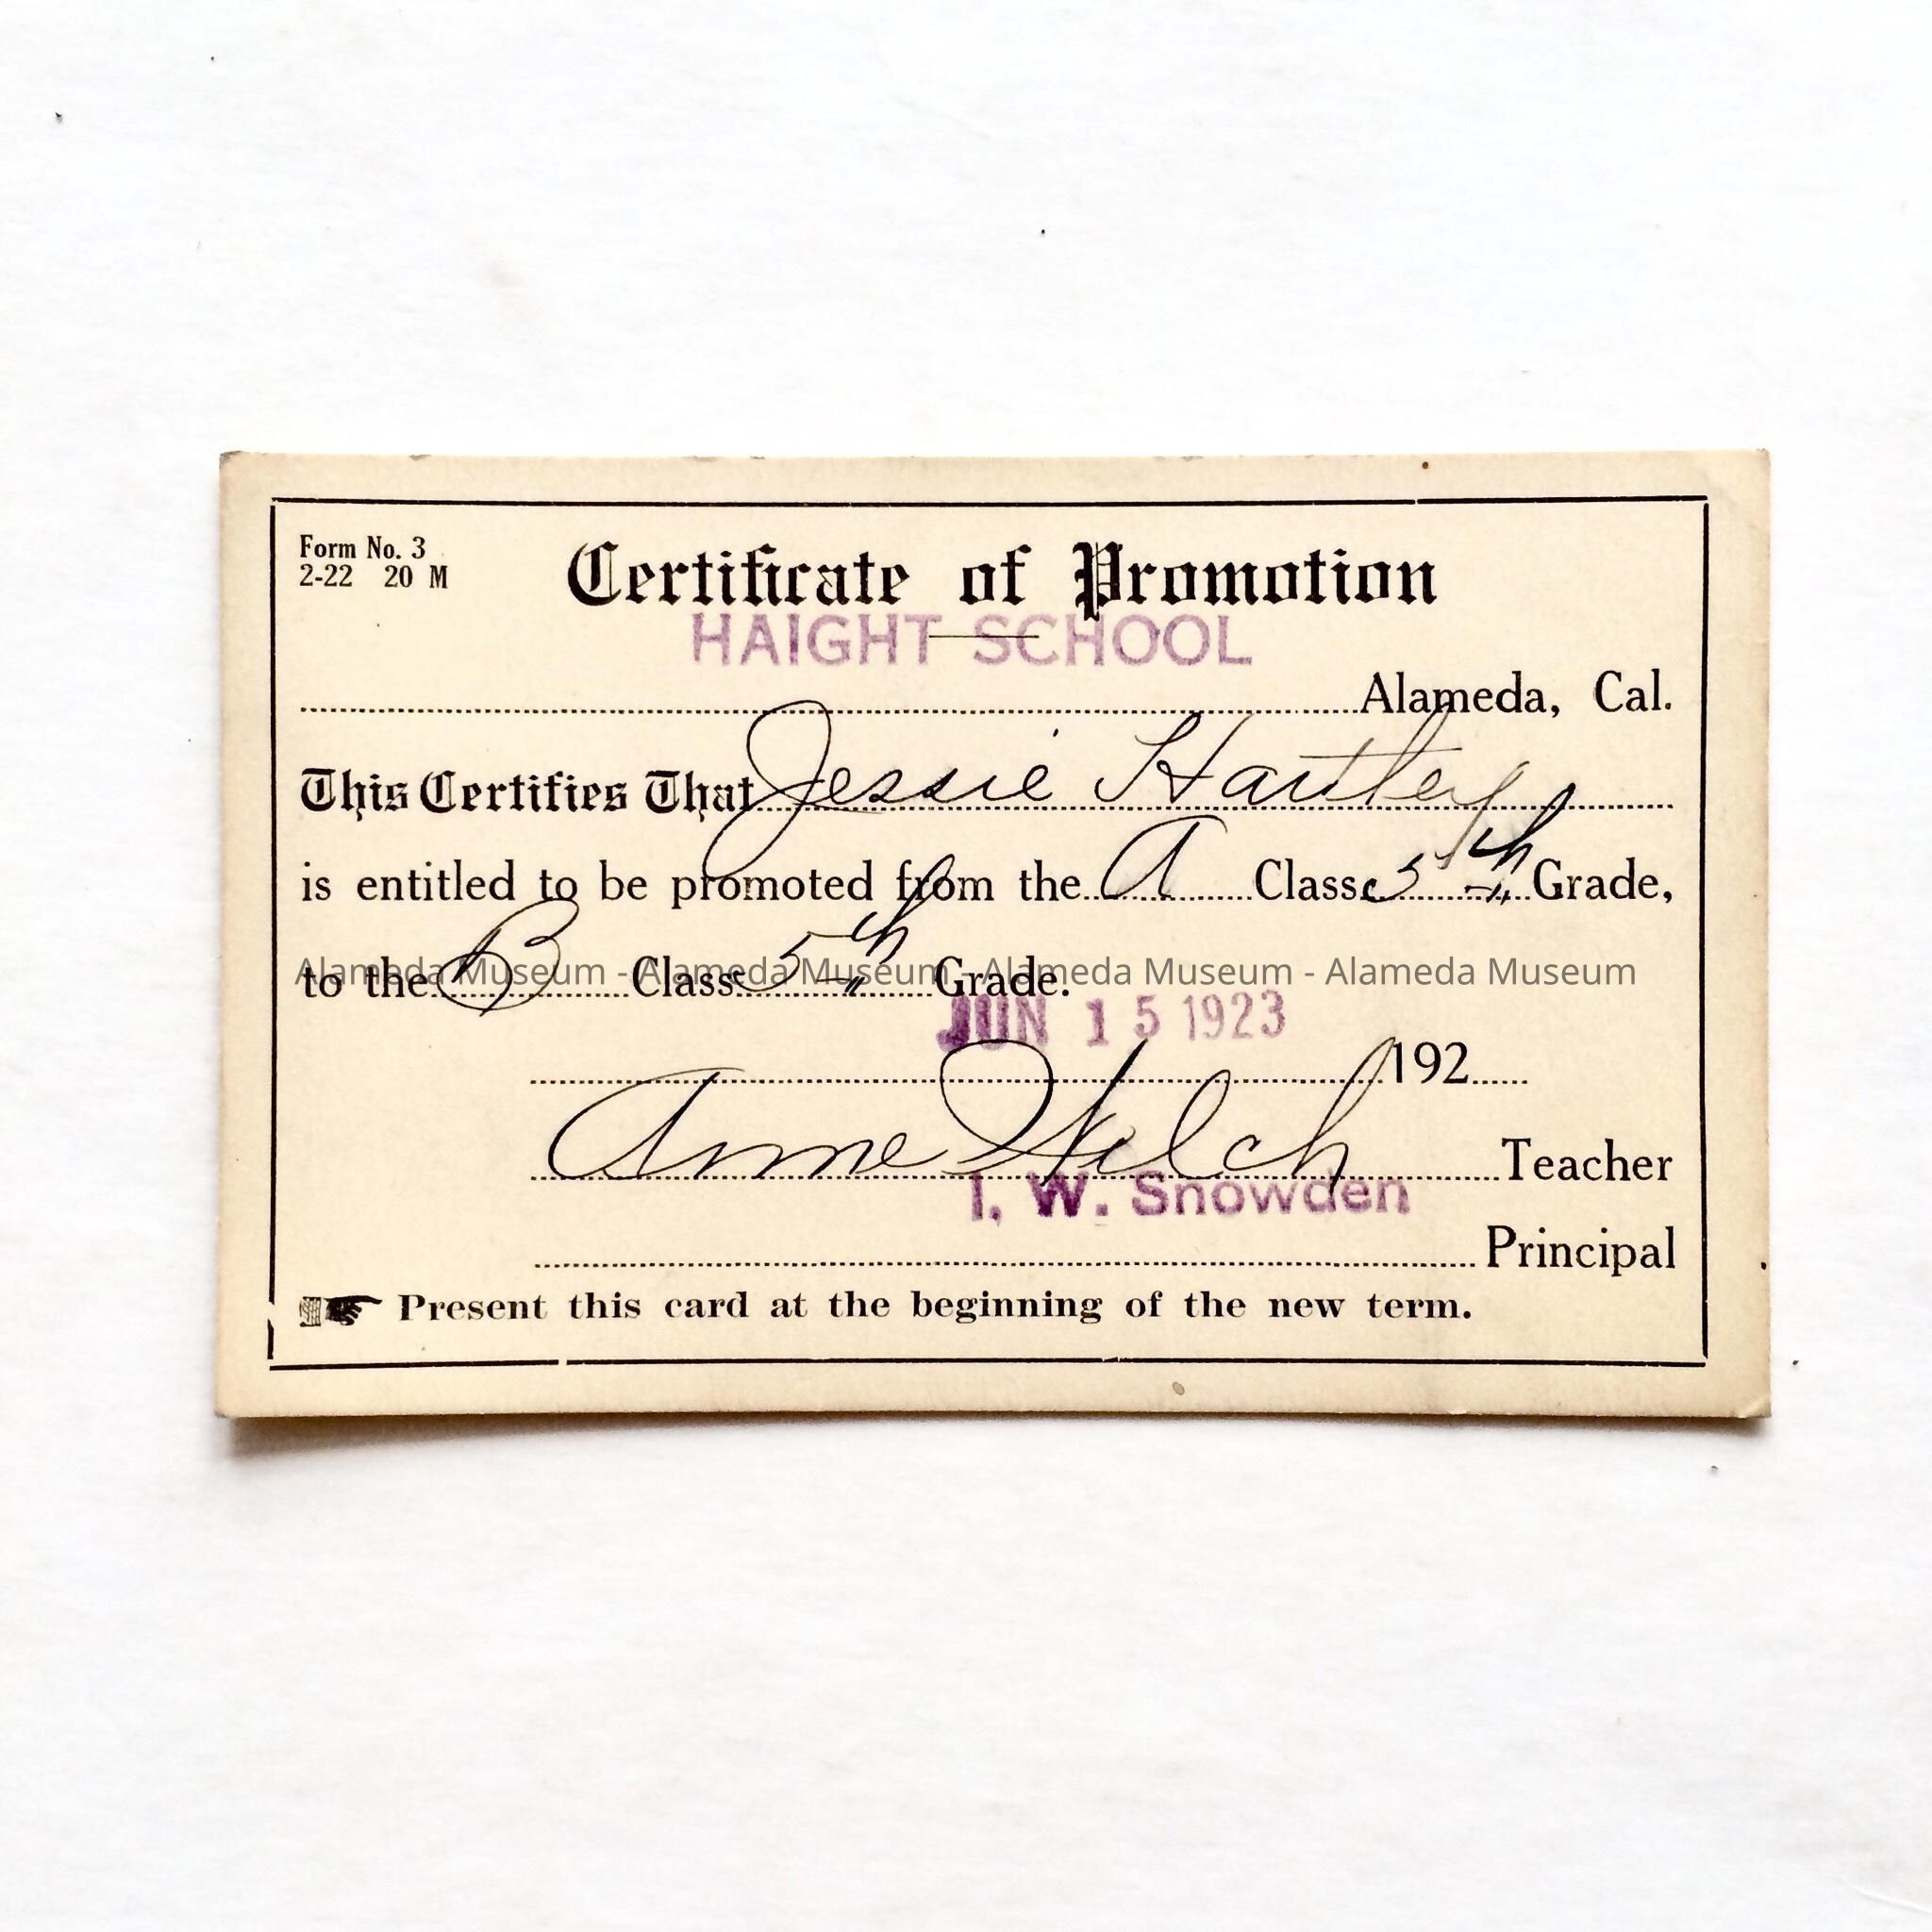 Form No. 3
2-22 20 M
Certificate of Promotion
HAIGHT SCHOOL
Alameda, Cal.
This Certifies That Jessie Hartley
is entitled to be promoted from the A Class 5th Grade,
to the B Class 5th Grade.
Alameda Museum - Alameda Museum - Alameda Museum - Alameda Museum
JUN 15 1923
192
Anne Welch Teacher
I. W. Snowden
Principal
Present this card at the beginning of the new term.